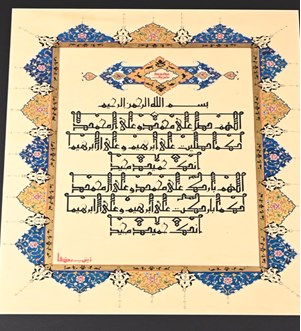 بسم الله الرحمن الرحيم
اللهم صل على محمد و على آل محمد
كما صليت على ابرهيم و على آل ابرهيم
انك حميد مجيد
اللهم بارك على محمد و على آل محمد
كما باركت على ابرهيم و على آل ابرهيم
انك حميد مجيد